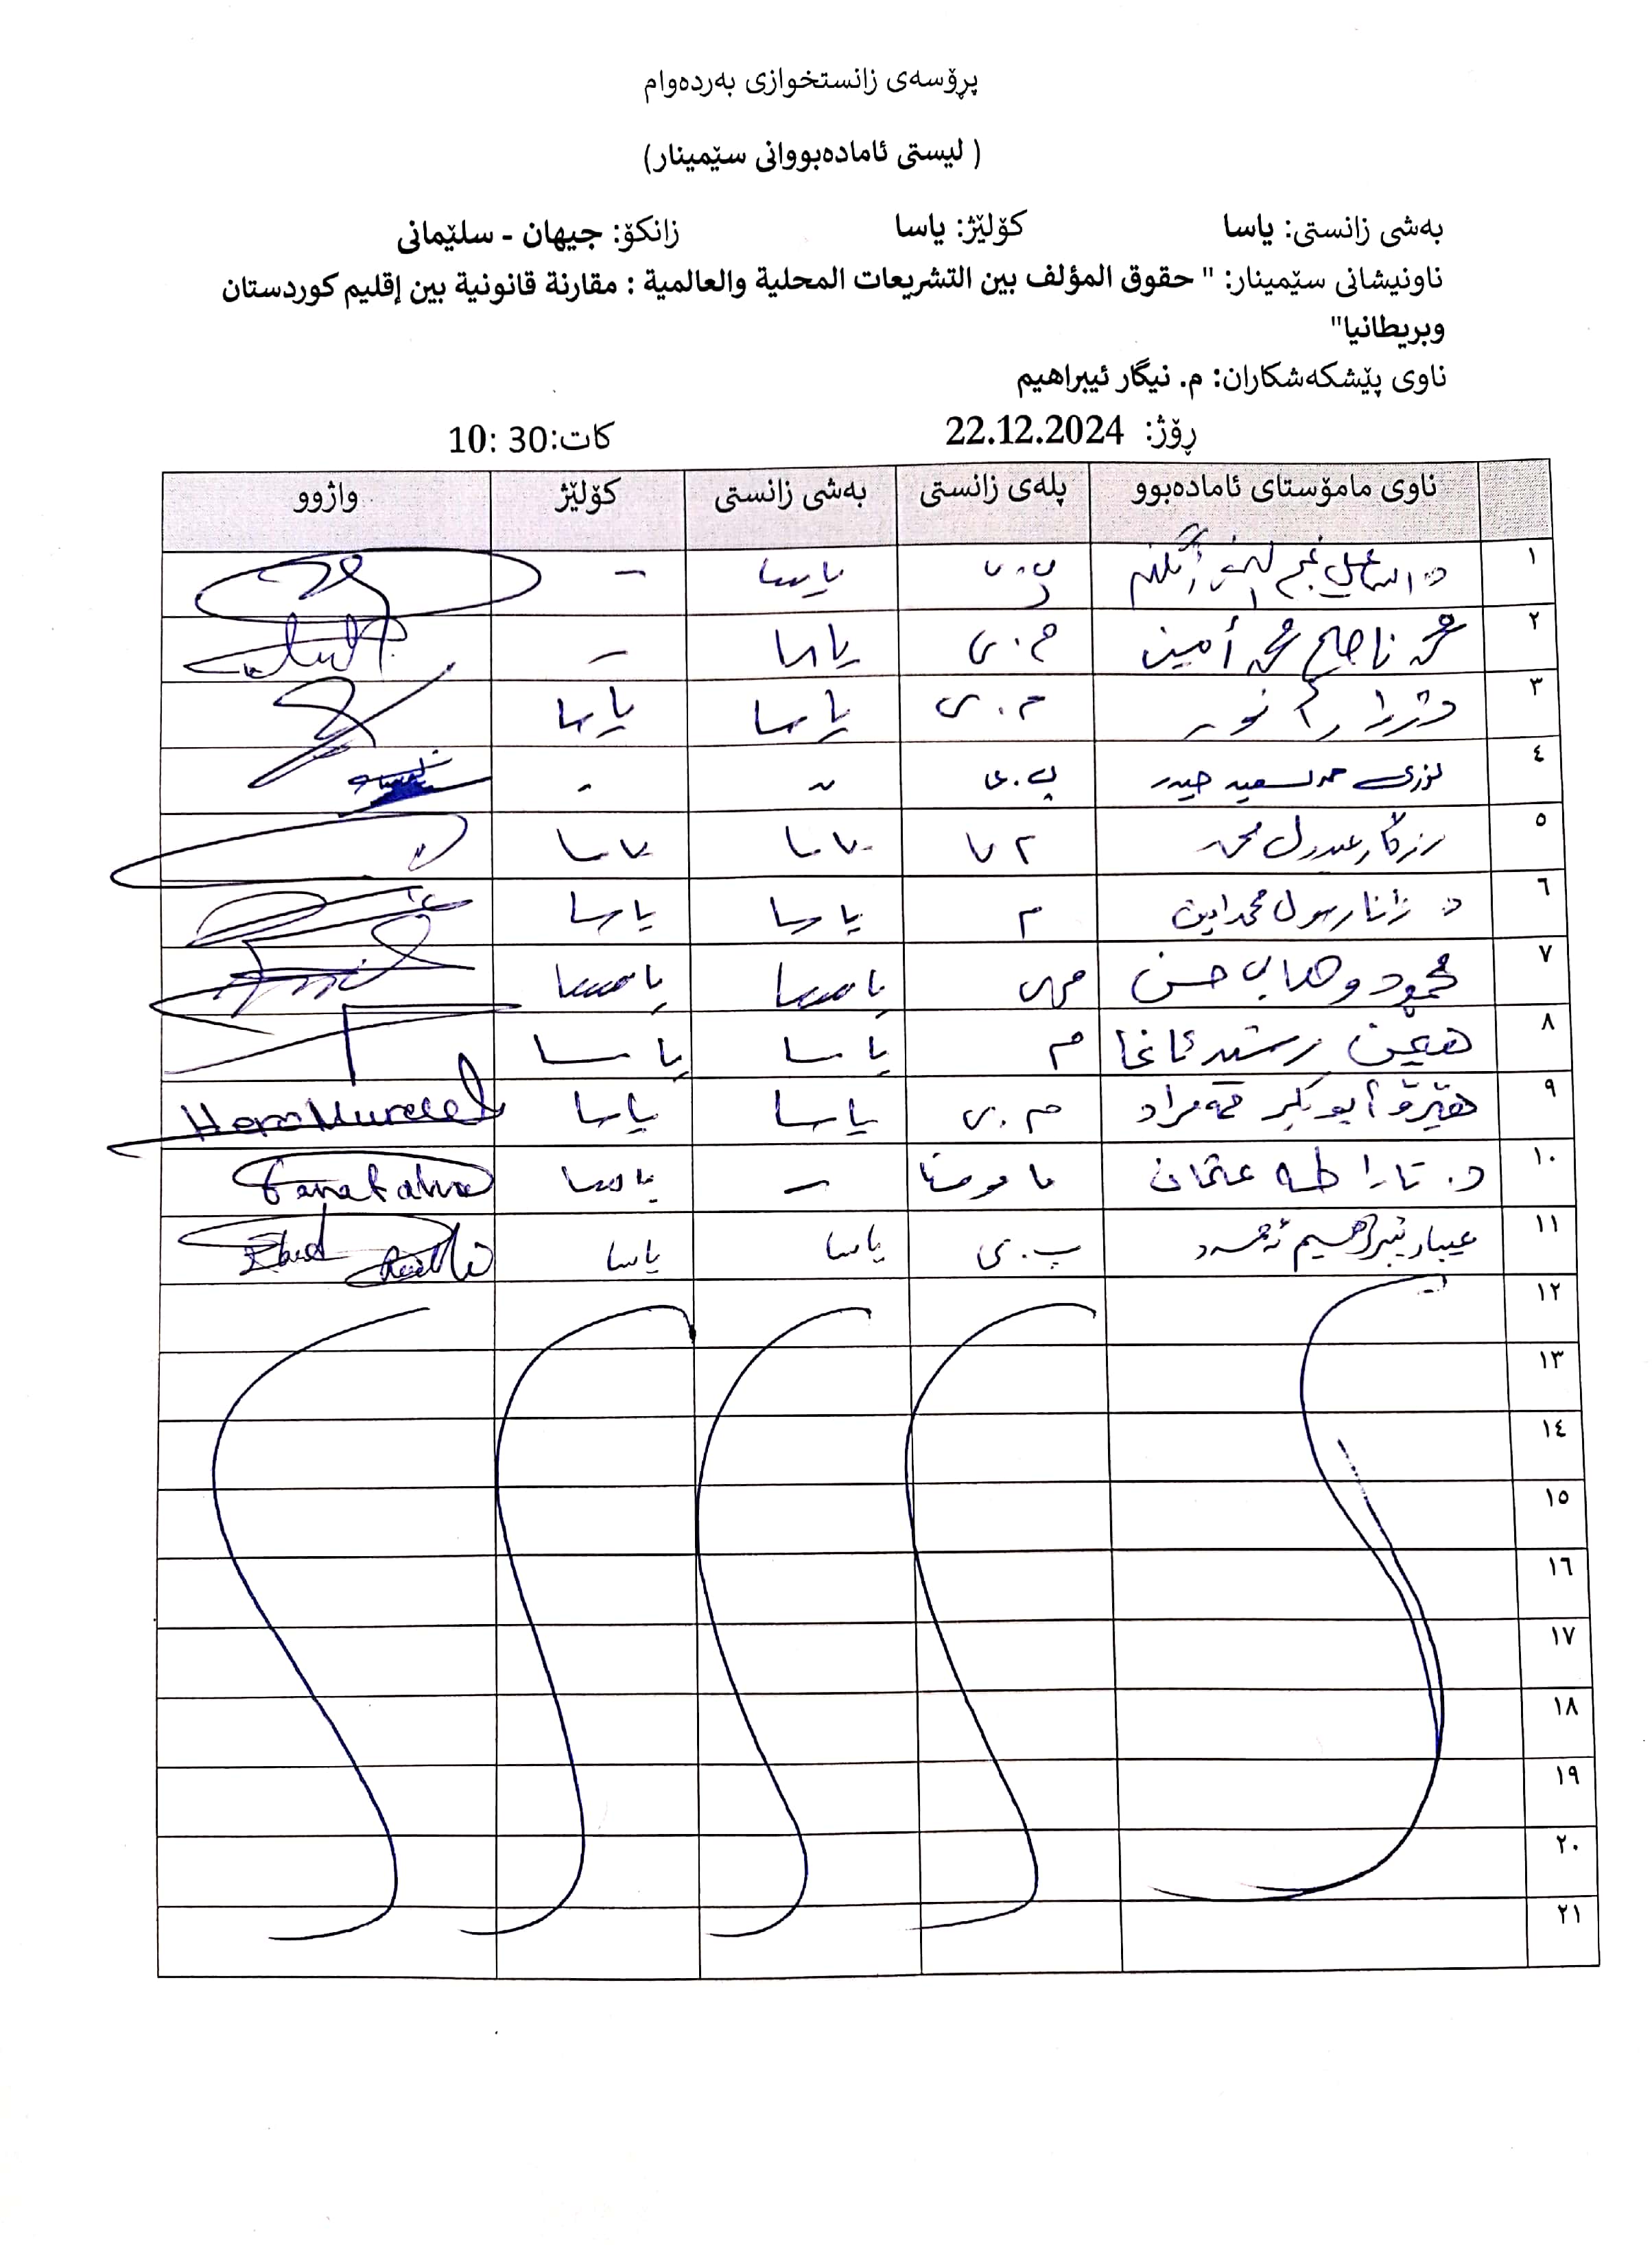 پرۆسەی زانستخوازی بەردەوام
( لیستی ئامادەبووانی سێمینار)
بەشی زانستی: یاسا کۆلێژ: یاسا زانکۆ: جیهان - سلێمانی
ناونیشانی سێمینار: " حقوق المؤلف بین التشریعات المحلیة والعالمیة : مقارنة قانونیة بین إقلیم كوردستان
وبریطانیا"
ناوی پێشکەشکاران: م. نیگار ئیبراهیم
ڕۆژ: 22.12.2024 کات:30 :10
ناوی مامۆستای ئامادەبوو پلەی زانستی بەشی زانستی کۆلێژ واژوو
١ د. اسماعیل نجم پ.ی یاسا -
٢ عمر ناصح محمد أمین م.ی یاسا -
٣ م.ی یاسا یاسا
٤ حمەسعید حیدر پ.ی
٥ رزگار محمد یاسا یاسا
٦ د. رسول محمدامین م یاسا یاسا
٧ محمود وهاب حسن م.ی یاسا یاسا
٨ هێمن رشید ئاغا م یاسا یاسا
٩ هێرۆ أبوبکر مراد م.ی یاسا یاسا
١٠ د. تارا طه عثمان مامۆستا - یاسا
١١ ئیبراهیم پ.ی یاسا یاسا
١٢
١٣
١٤
١٥
١٦
١٧
١٨
١٩
٢٠
٢١